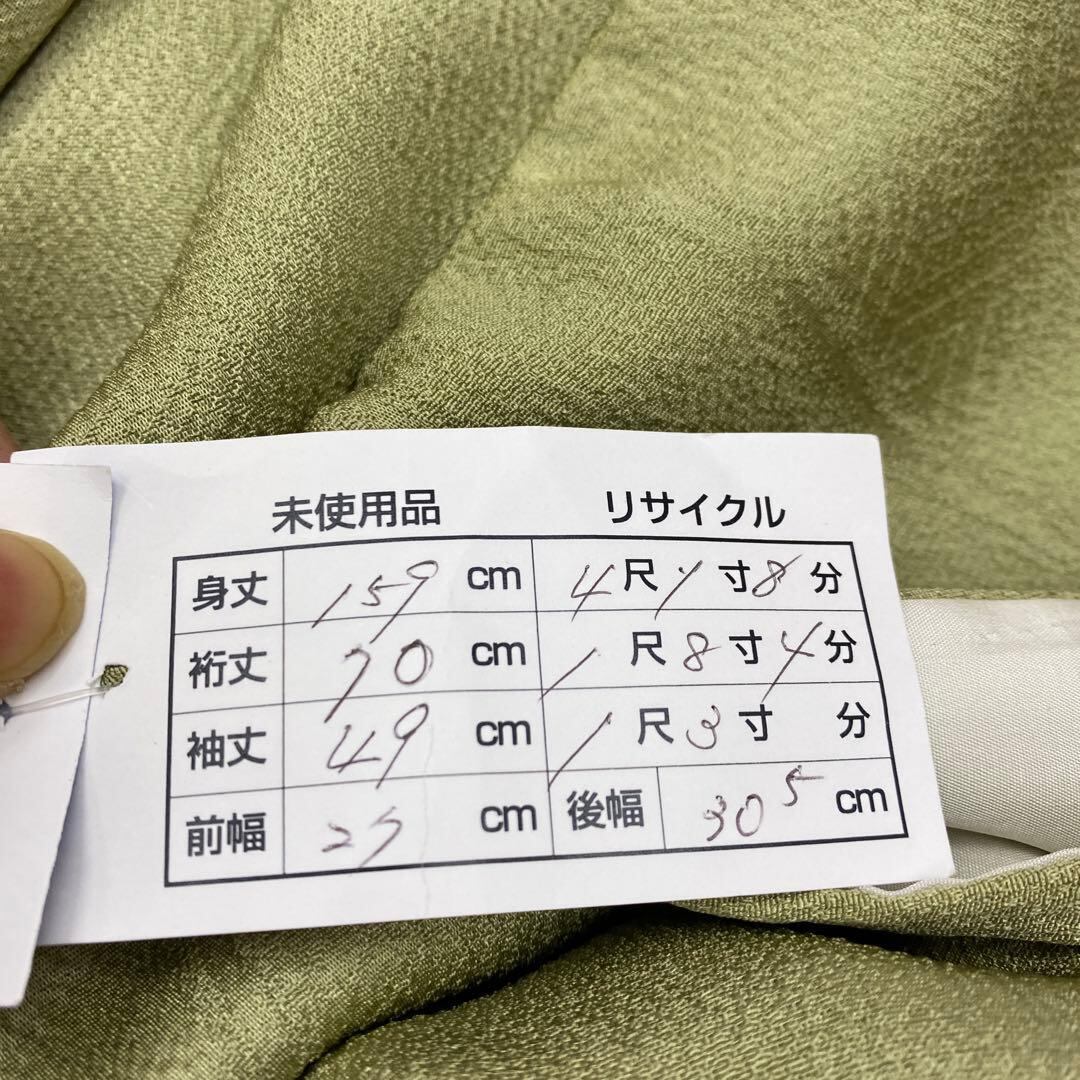 未使用品 リサイクル
身丈 159 cm 4尺1寸8分
裄丈 70 cm 1尺8寸4分
袖丈 49 cm 1尺3寸 分
前幅 25 cm 後幅 30 5 cm